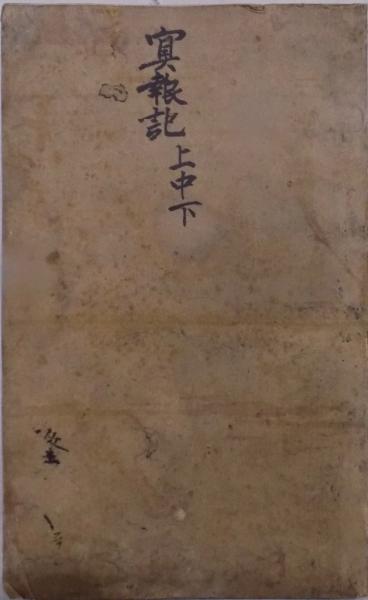 寘報記上中下